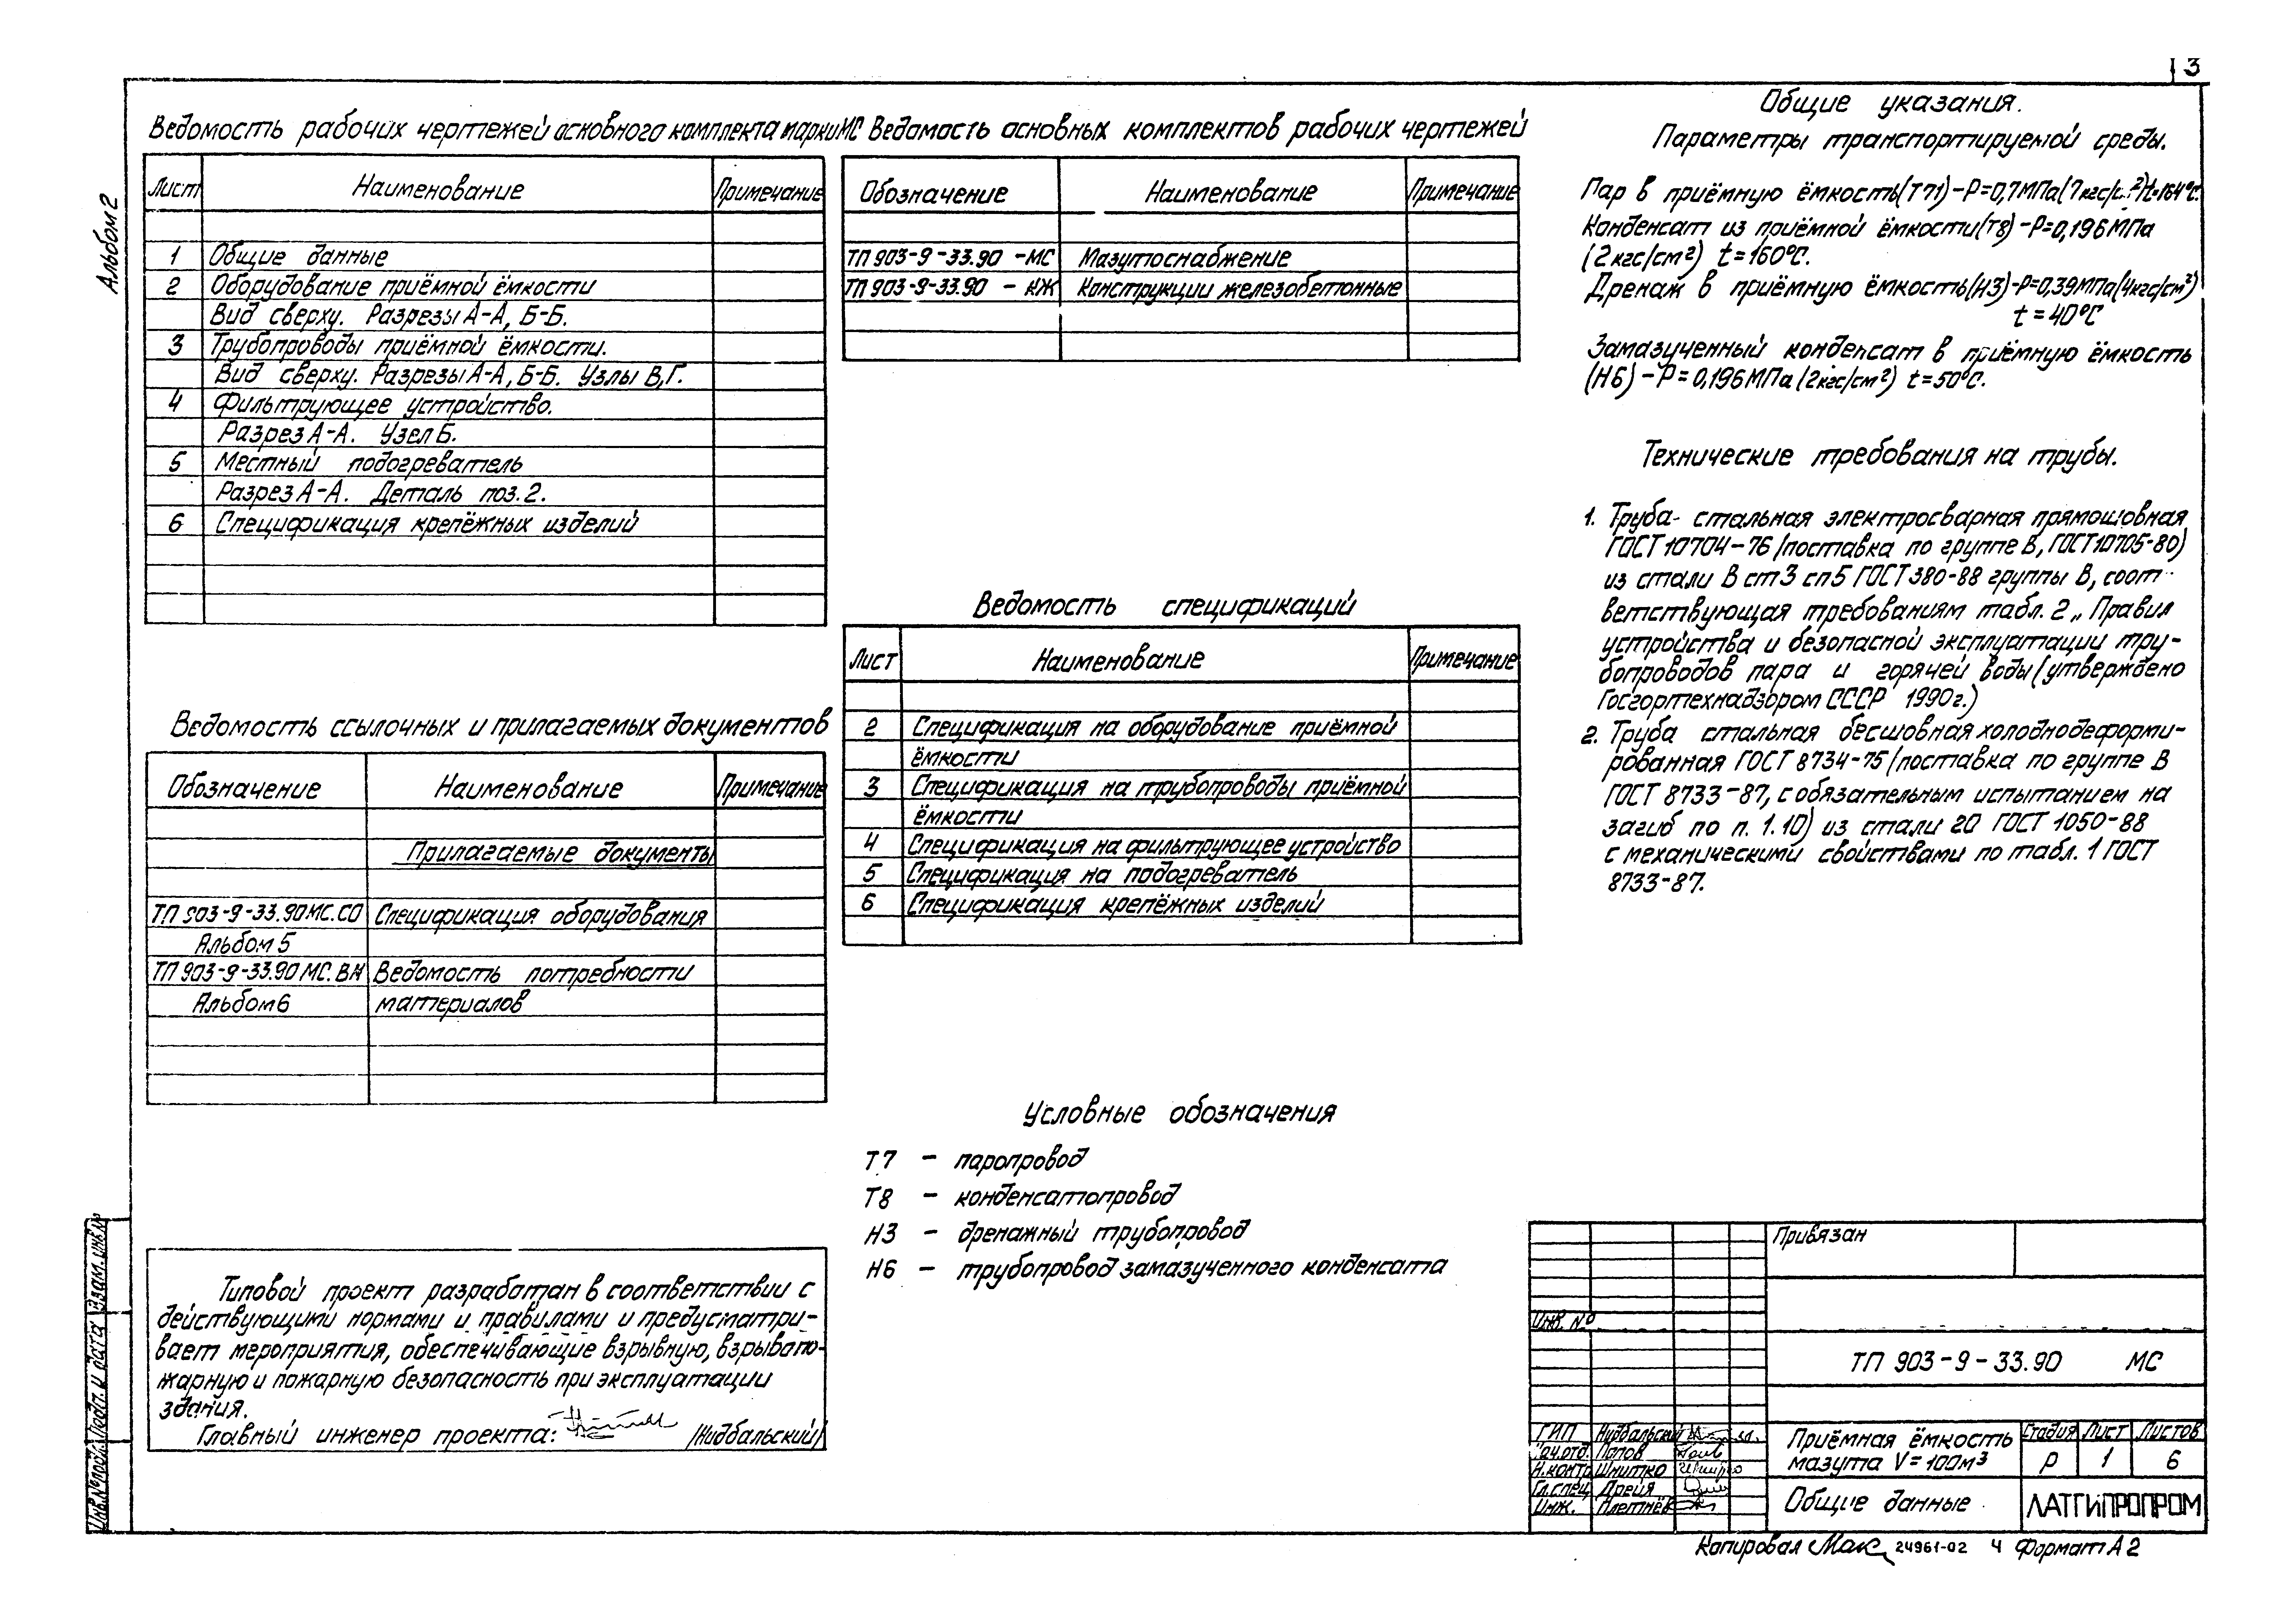 3
Альбом 2
Ведомость рабочих чертежей основного комплекта марки МС
Лист Наименование Примечание
1 Общие данные
2 Оборудование приёмной ёмкости
Вид сверху. Разрезы А-А, Б-Б.
3 Трубопроводы приёмной ёмкости.
Вид сверху. Разрезы А-А, Б-Б. Узлы В,Г.
4 Фильтрующее устройство.
Разрез А-А. Узел Б.
5 Местный подогреватель
Разрез А-А. Деталь поз. 2.
6 Спецификация крепёжных изделий
Ведомость ссылочных и прилагаемых документов
Обозначение Наименование Примечание
Прилагаемые документы
ТП 903-9-33.90 МС.СО Спецификация оборудования
Альбом 5
ТП 903-9-33.90 МС.ВМ Ведомость потребности
Альбом 6 материалов
Типовой проект разработан в соответствии с
действующими нормами и правилами и предусматри-
вает мероприятия, обеспечивающие взрывную, взрывопо-
жарную и пожарную безопасность при эксплуатации
здания.
Главный инженер проекта: /Нидбальский/
Ведомость основных комплектов рабочих чертежей
Обозначение Наименование Примечание
ТП 903-9-33.90 -МС Мазутоснабжение
ТП 903-9-33.90 - КЖ Конструкции железобетонные
Ведомость спецификаций
Лист Наименование Примечание
2 Спецификация на оборудование приёмной
ёмкости
3 Спецификация на трубопроводы приёмной
ёмкости
4 Спецификация на фильтрующее устройство
5 Спецификация на подогреватель
6 Спецификация крепёжных изделий
Условные обозначения
Т7 - паропровод
Т8 - конденсатопровод
Н3 - дренажный трубопровод
Н6 - трубопровод замазученного конденсата
Общие указания.
Параметры транспортируемой среды.
Пар в приёмную ёмкость (Т71) - Р=0,7МПа (7кгс/с 2) t=164°С.
Конденсат из приёмной ёмкости (Т8) - Р=0,196МПа
(2кгс/см²) t=160°С.
Дренаж в приёмную ёмкость (Н3) - Р=0,39МПа (4кгс/см²)
t=40°С
Замазученный конденсат в приёмную ёмкость
(Н6) - Р=0,196МПа (2кгс/см²) t=50°С.
Технические требования на трубы.
1. Труба- стальная электросварная прямошовная
ГОСТ 10704-76 /поставка по группе В, ГОСТ 10705-80)
из стали В ст3 сп5 ГОСТ 380-88 группы В, соот-
ветствующая требованиям табл. 2 „Правил
устройства и безопасной эксплуатации тру-
бопроводов пара и горячей воды (утверждено
Госгортехнадзором СССР 1990г.)
2. Труба стальная бесшовная холоднодеформи-
рованная ГОСТ 8734-75 /поставка по группе В
ГОСТ 8733-87, с обязательным испытанием на
загиб по п. 1.10) из стали 20 ГОСТ 1050-88
с механическими свойствами по табл. 1 ГОСТ
8733-87.
Привязан
Инв. №
ТП 903-9-33.90 МС
ГИП Нидбальский
Нач.отд. Попов
Н.контр Шнитко
Гл.спец Дрейя
Инж. Плетнёв
Приёмная ёмкость
мазута V=100м³
Стадия Лист Листов
Р 1 6
Общие данные
ЛАТГИПРОПРОМ
Инв.№подл. Подп. и дата Взам. инв.№
Копировал Мак 24961-02 4 Формат А2